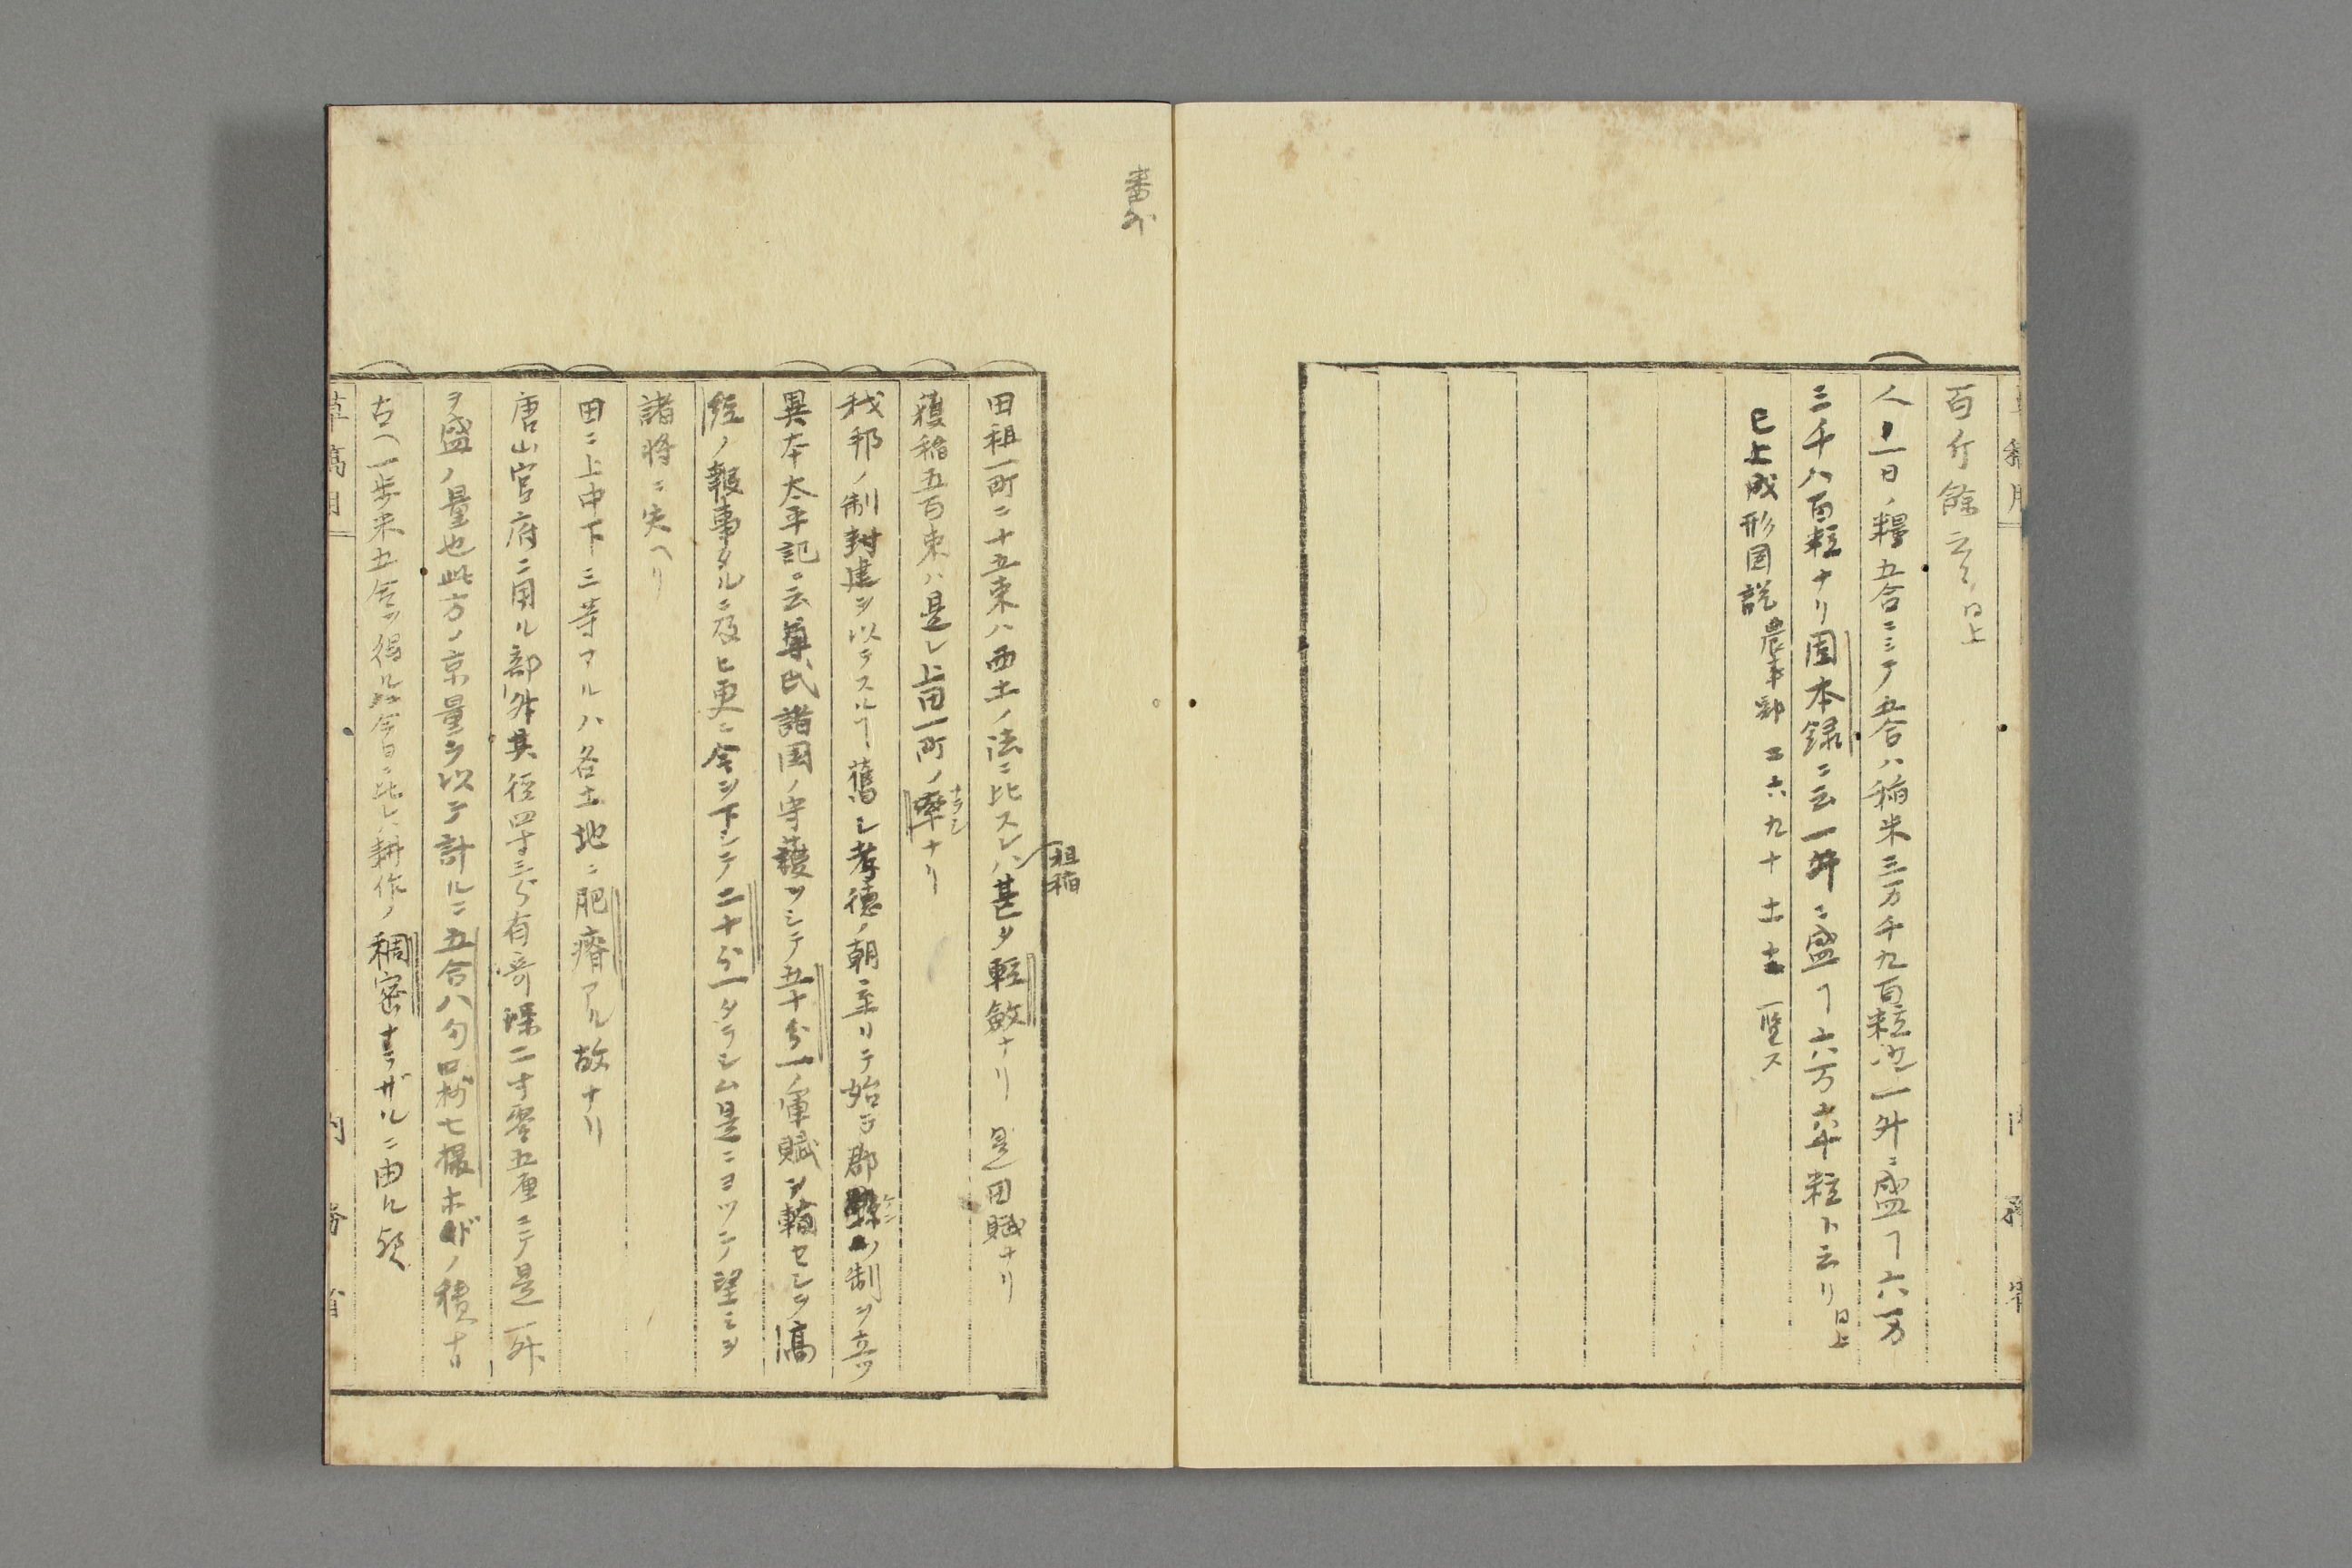 百斤餘云々 同上
人一日ノ糧五合ニシテ五合ハ稲米三万千九百粒一升ニ盛ヿ六万
三千八百粒ナリ国本録ニ云一舛ニ盛ヿ六万六千粒ト云リ 同上
已上成形図説 農事部 二 六 九 十 十一
番外
田租一町二十五束ハ西土ノ法ニ比スレハ甚タ軽斂ナリ 是田賦ナリ
租稲
穫稲五百束ハ是レ上田一町ノ率ナリ
ナラシ
我邦ノ制封建ヲ以テスルヿ舊シ孝徳ノ朝ニ至リテ始テ郡縣ノ制ヲ立ツ
ケン
異本太平記ニ云尊氏諸国ノ守護ヲシテ五十分一ノ軍賦ヲ輸セシヲ高
経ノ報事タルニ及ヒ更ニ令ヲ下シテ二十分一タラシム是ニヨツテ望ミヲ
諸将ニ失ヘリ
田ニ上中下三等アルハ各土地ニ肥瘠アル故ナリ
唐山官府ニ用ル部舛其径四寸三分有奇深二寸零五厘ニテ是一舛
ヲ盛ノ量也此方ノ京量ヲ以テ計ルニ五合八勺口抄七撮ホドノ積ナリ
古ヘ一歩米五合ヲ得ル今日ニ比レハ耕作ノ稠密ナラザルニ由ル歟
草稿用
内務省